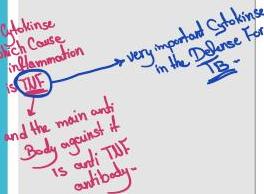 Cytokinse
which Cause
inflammation
is TNF
very important Cytokinse
in the Defense For
TB
and the main anti
Body against it
is anti TNF
antibody